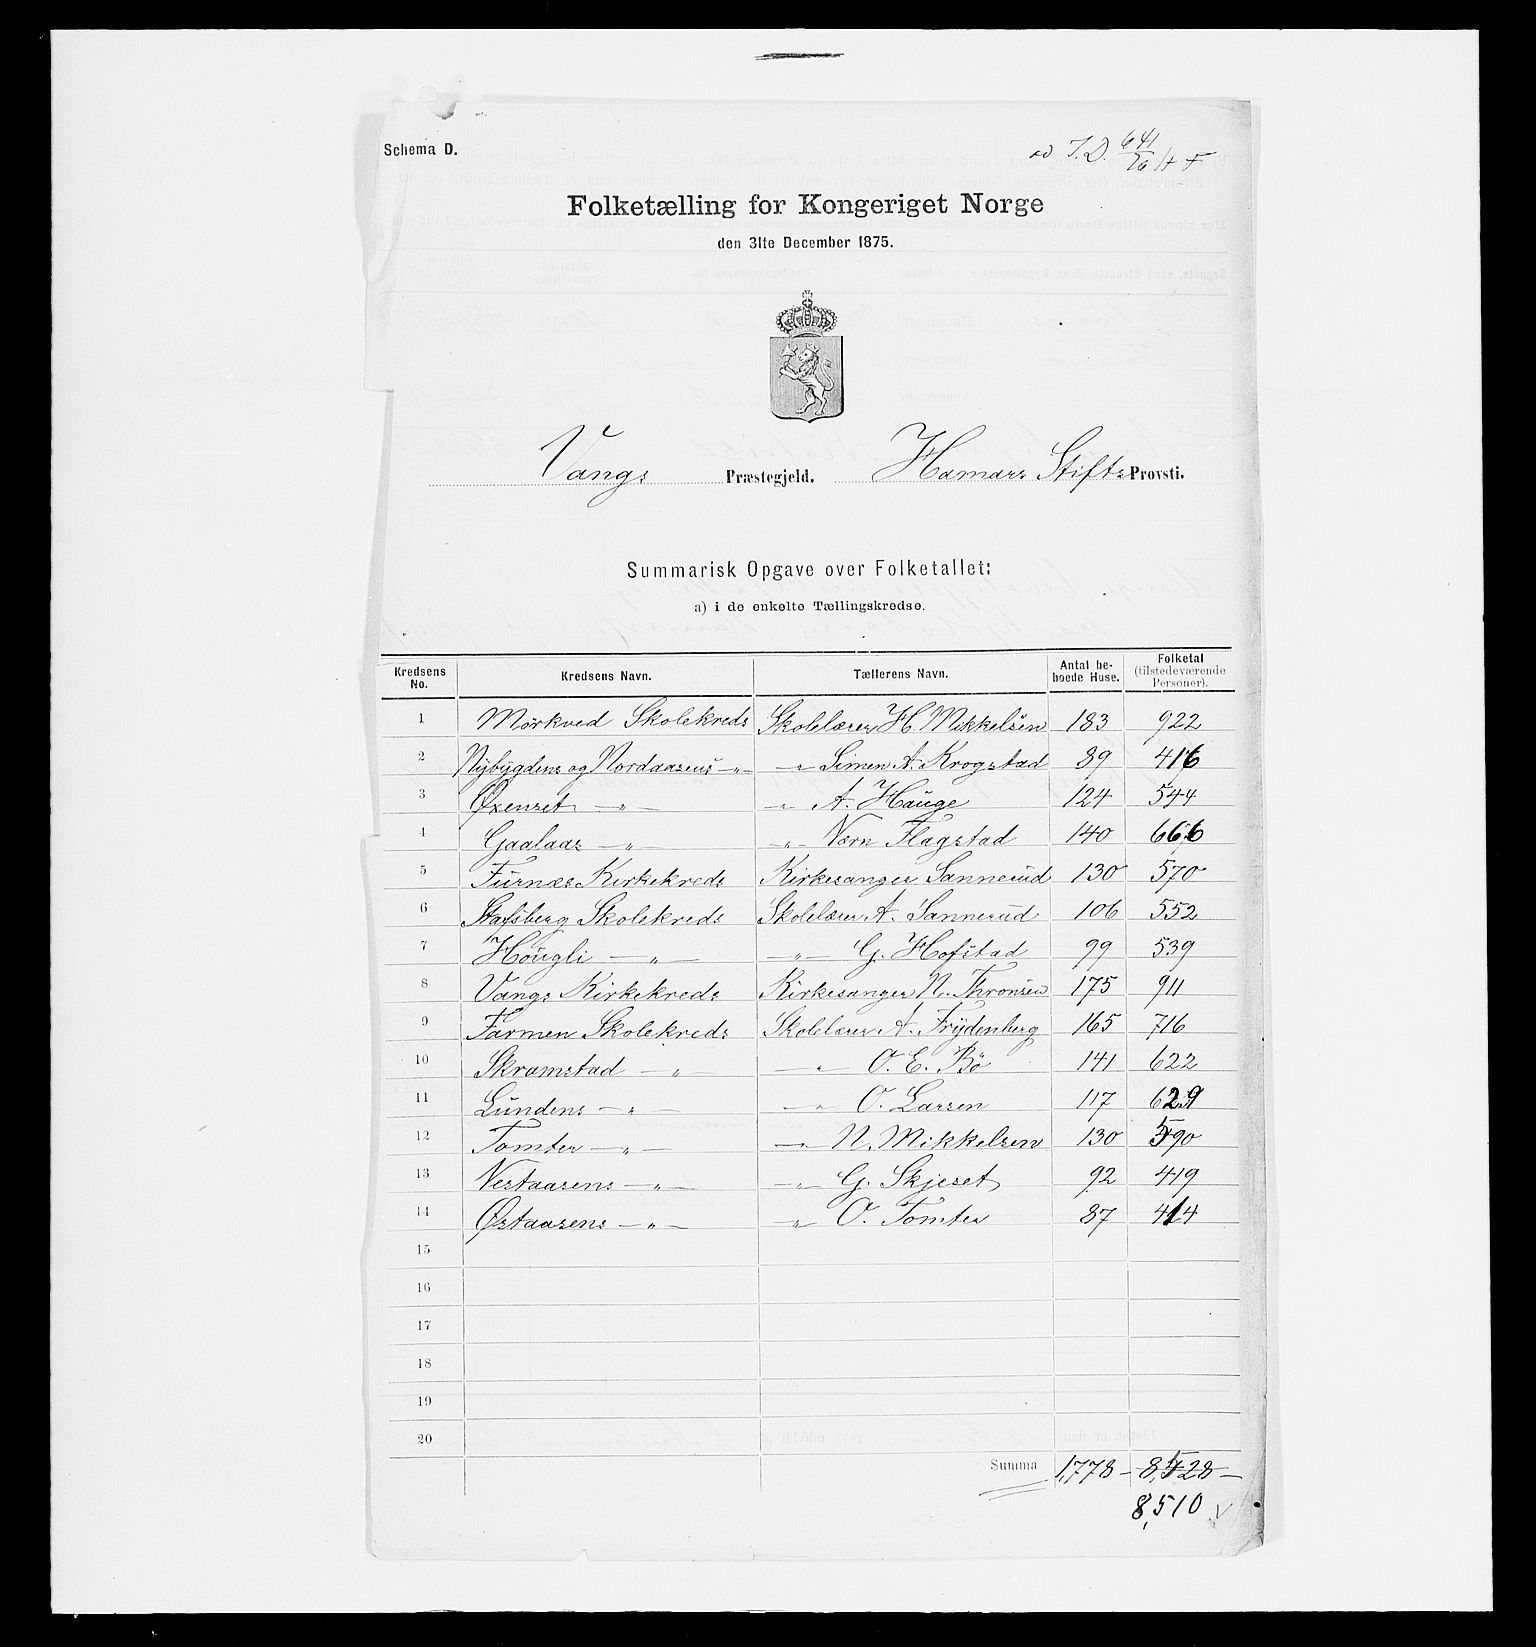 Schema D.
ad J.D. 641/76 H F
Folketælling for Kongeriget Norge
den 31te December 1875.
Vangs Præstegjeld. Hamars Stifts Provsti.
Summarisk Opgave over Folketallet:
a) i de enkelte Tællingskredse.
Kredsens No. Kredsens Navn. Tællerens Navn. Antal beboede Huse. Folketal (tilstedeværende Personer).
1 Mörkved Skolekreds Skolelærer H. Mikkelsen 183 922
2 Nybygdens og Nordaasens —„— —„— Simen A. Krogstad 89 416
3 Øxenset —„— —„— A. Hauge 124 544
4 Gaalaas —„— —„— Nærn Flagstad 140 666
5 Furnæs Kirkekreds Kirkesanger Sannerud 130 570
6 Stafsberg Skolekreds Skolelærer A. Sannerud 106 552
7 Hougli —„— —„— G. Hofstad 99 539
8 Vangs Kirkekreds Kirkesanger N. Thronsen 175 911
9 Farmen Skolekreds Skolelærer A. Frydenberg 165 716
10 Skramstad —„— —„— O. E. Bö 141 622
11 Lundens —„— —„— O. Larsen 117 629
12 Tomter —„— —„— N. Mikkelsen 130 590
13 Vestaasens —„— —„— G. Skjeset 92 419
14 Østaasens —„— —„— O. Tomter 87 414
15
16
17
18
19
20
Summa 1,778 — 8,528 —
8,510